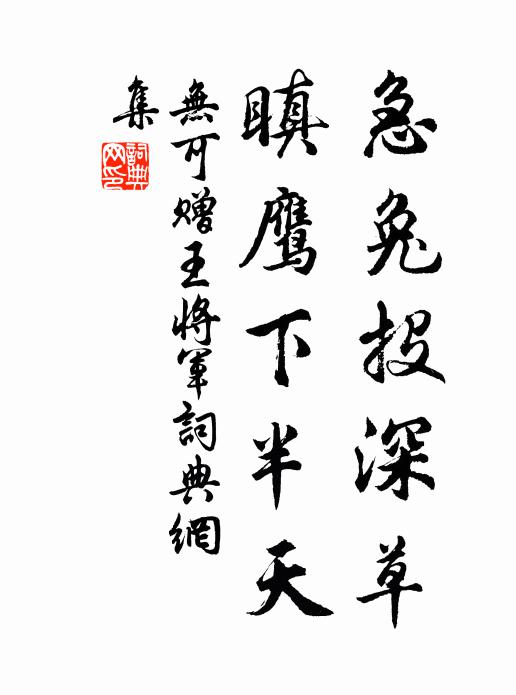 急兔投深草
瞋鹰下半天
無可赠王将軍詞典網
集
詞典
网印